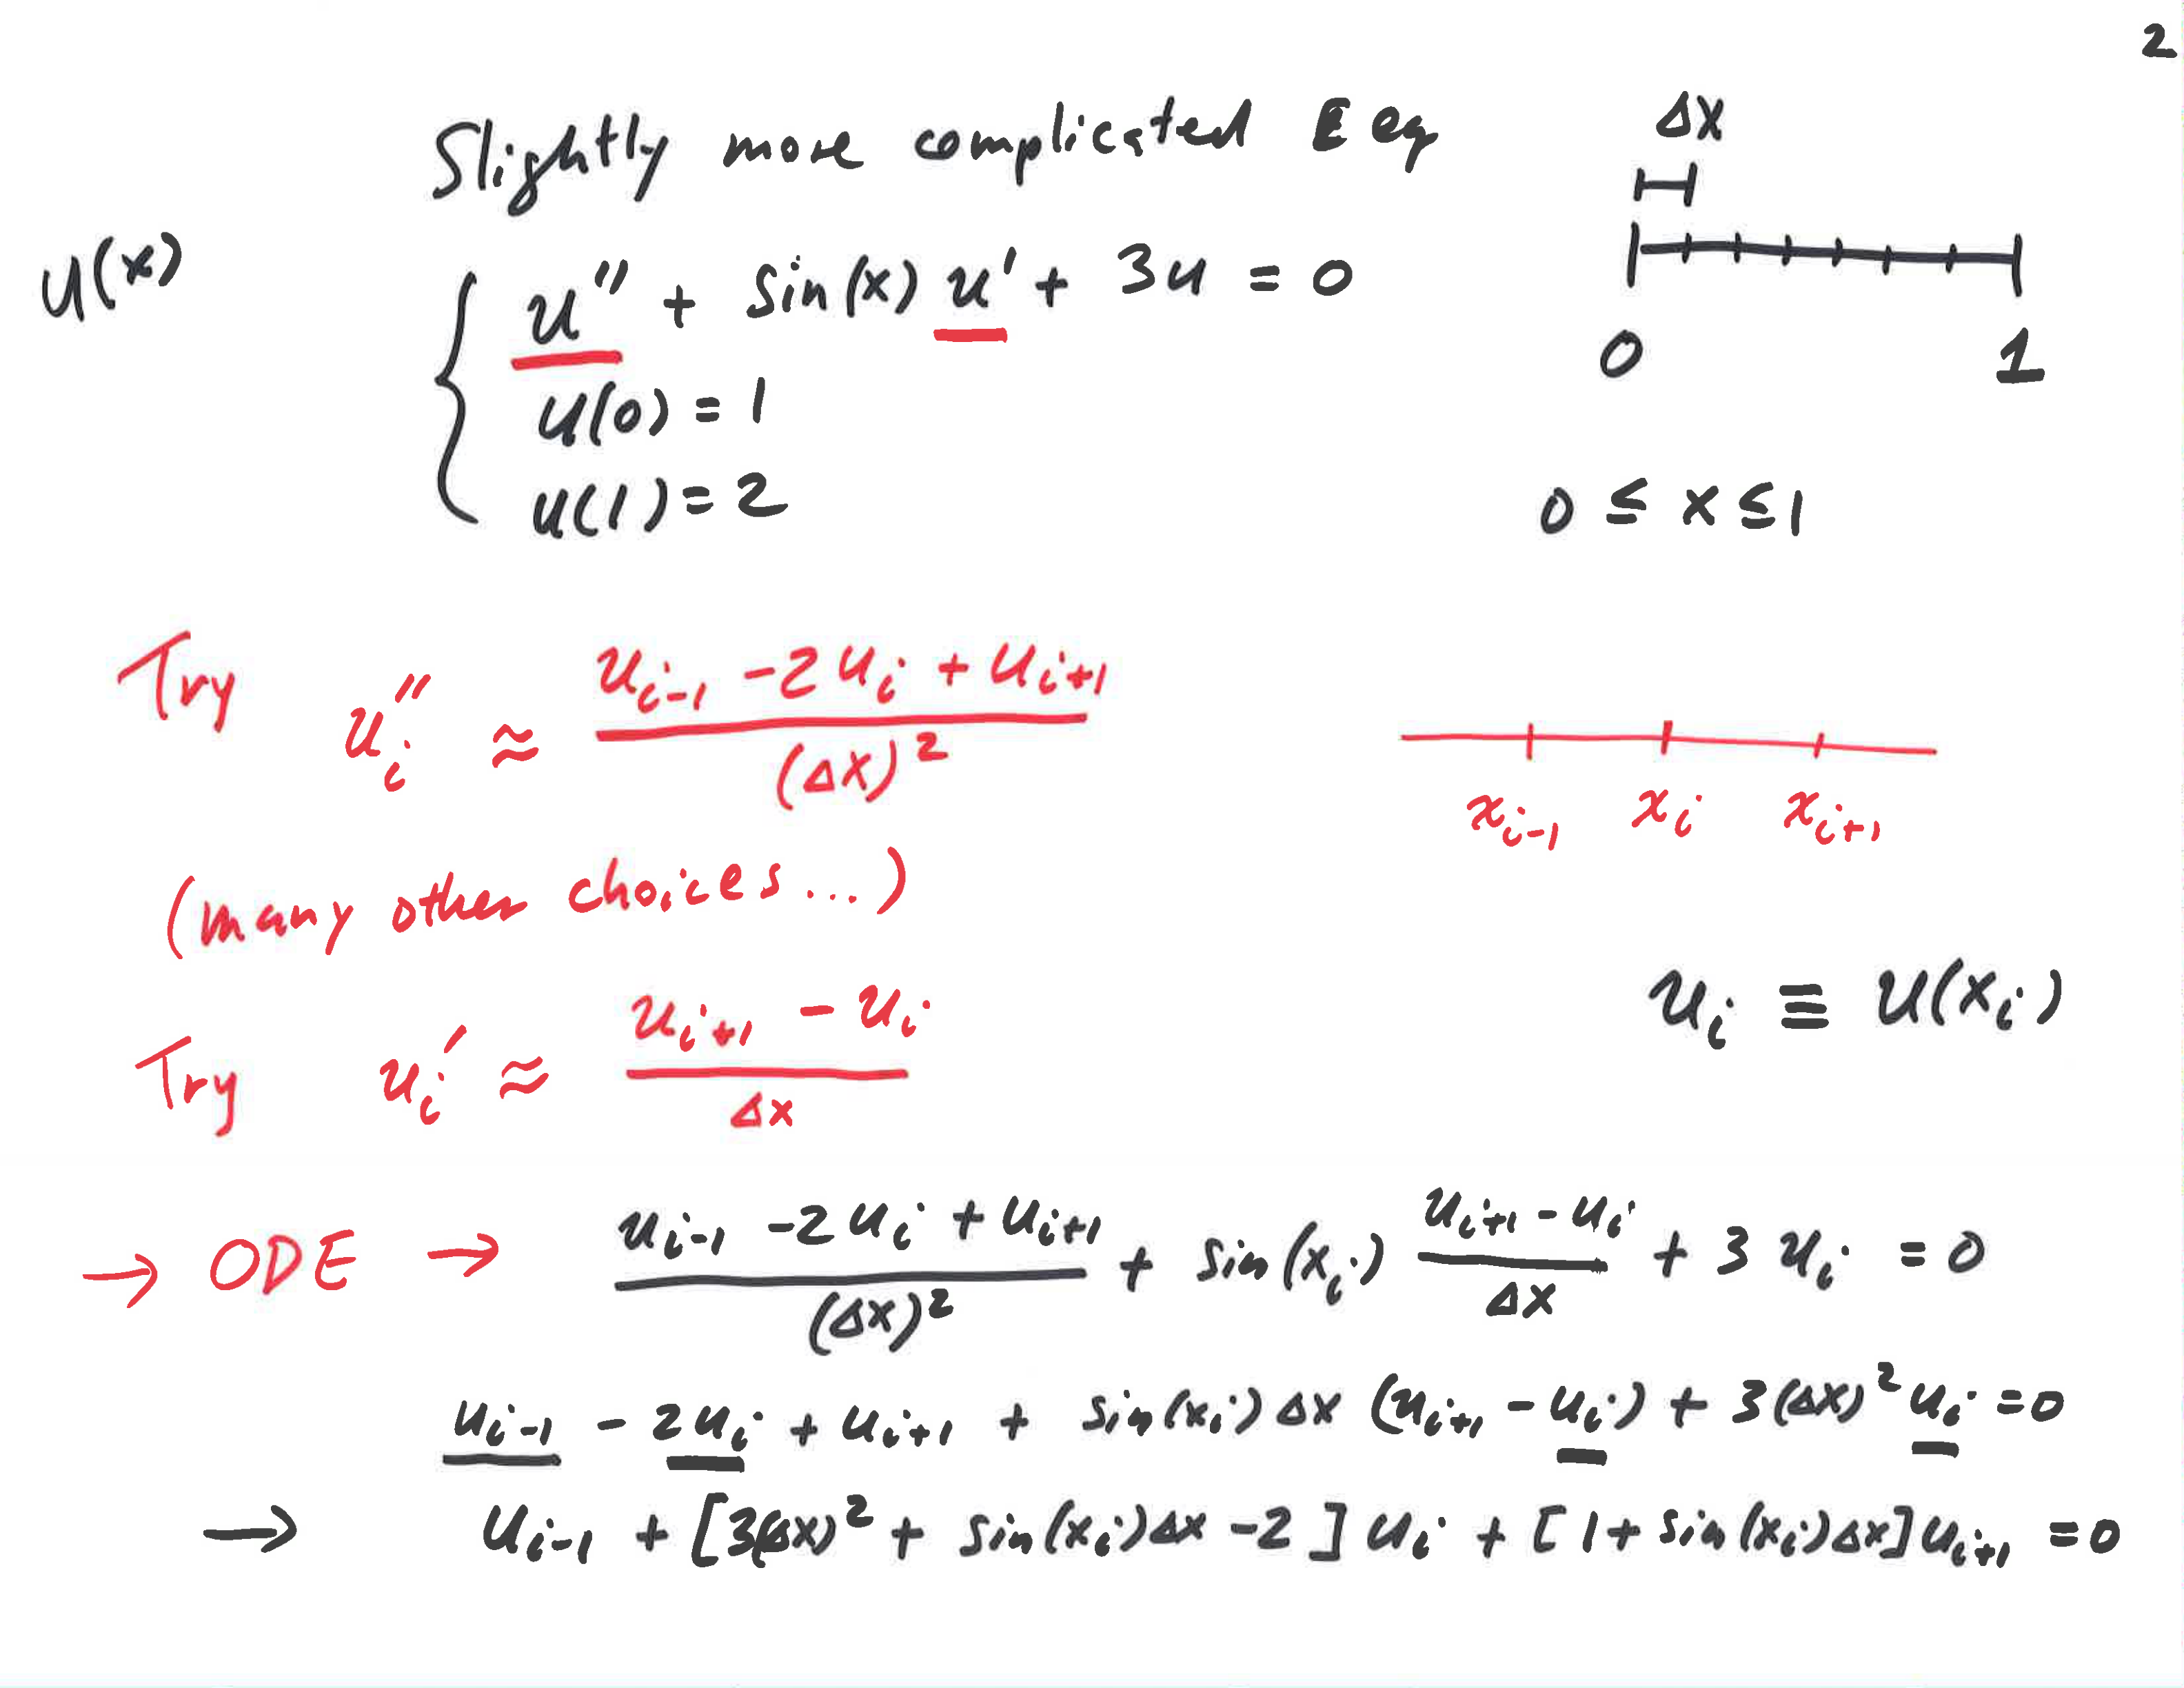 2
Slightly more complicated E eq
Δx
u(x)
u'' + sin(x) u' + 3u = 0
0 1
u(0) = 1
u(1) = 2
0 ≤ x ≤ 1
Try u_i'' ≈ (u_{i-1} - 2u_i + u_{i+1}) / (Δx)^2
x_{i-1} x_i x_{i+1}
(many other choices...)
u_i ≡ u(x_i)
Try u_i' ≈ (u_{i+1} - u_i) / Δx
→ ODE → (u_{i-1} - 2u_i + u_{i+1}) / (Δx)^2 + sin(x_i) (u_{i+1} - u_i) / Δx + 3 u_i = 0
u_{i-1} - 2u_i + u_{i+1} + sin(x_i) Δx (u_{i+1} - u_i) + 3(Δx)^2 u_i = 0
→ u_{i-1} + [3(Δx)^2 + sin(x_i)Δx - 2] u_i + [1 + sin(x_i)Δx] u_{i+1} = 0